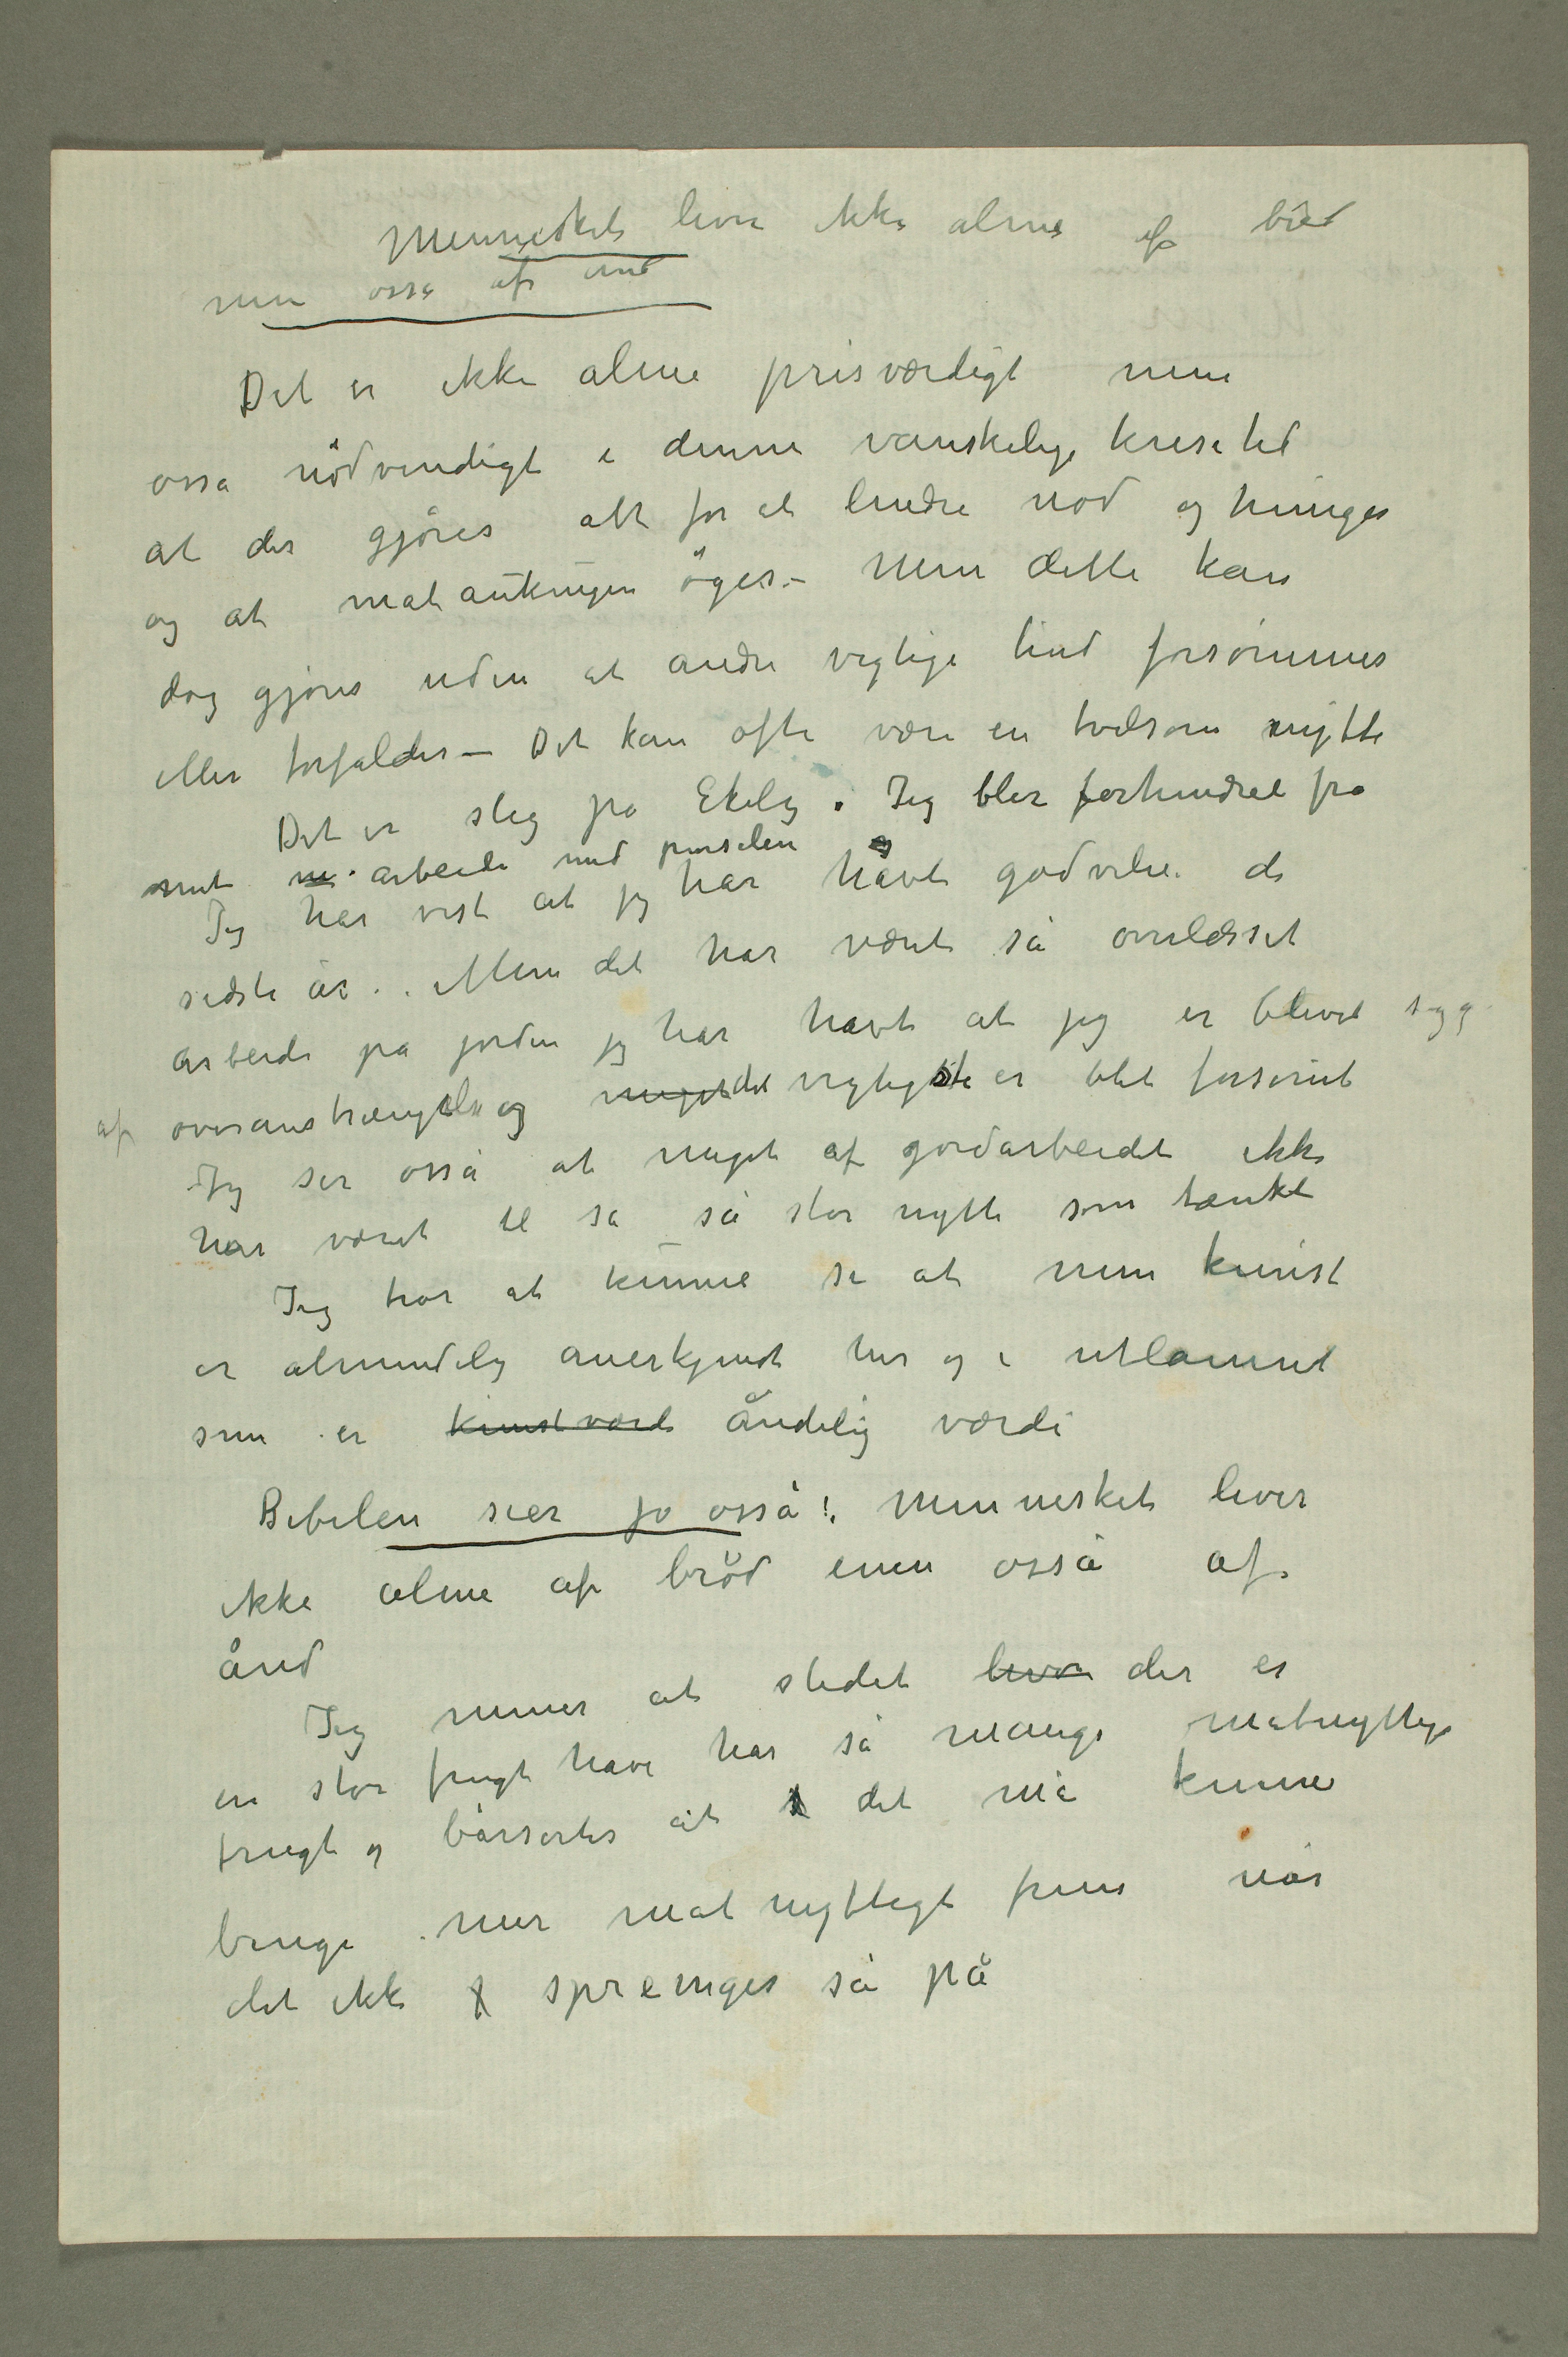 Mennesket lever ikke alene af bröd
men osså af ånd
Det er ikke alene prisværdigt men
osså nödvendigt i denne vanskelige krisetid
at der gjöres alt for at lindre nöd og hunger
og at mataukingen öges – Men dette kan
dog gjöres uden at andre vigtige ting forsömmes
eller forfalder – Det kan ofte være en tvilsom nytte
Det er slig på Ekely. Jeg bler forhindret fra
mit arbeide med penselen
Jeg har vist at jeg har havt godvilie de
sidste år.. Men det har været så overlæsset
arbeide på jorden jeg har havt at jeg er blevet syg
af overanstrængelse og meget det vigtigste er blet forsömt
Jeg ser osså at meget af gårdarbeidet ikke
har været til så så stor nytte som tænkt
Jeg tror at kunne se at min kunst
er almindelig anerkjendt her og i utlannet
som er kunstværdi åndelig værdi
Bibelen sier jo osså!, Mennesket lever
ikke alene af bröd men osså af
ånd
Jeg mener at stedet hvor der er
en stor frugt have har så mange matnyttige
frugt og bærsorter at det må kunne
bringe mer matnyttigt frem når
det ikke sprenges så på